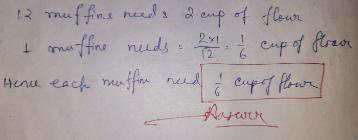 12 muffins needs 2 cup of flour
1 muffine needs = 2×1/12 = 1/6 cup of flour
Hence each muffin need 1/6 cup of flour
Answer